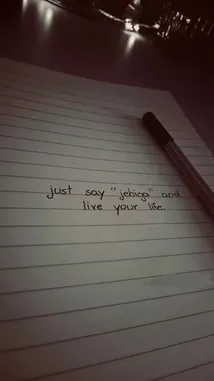 just say "jebiga" and
live your life.